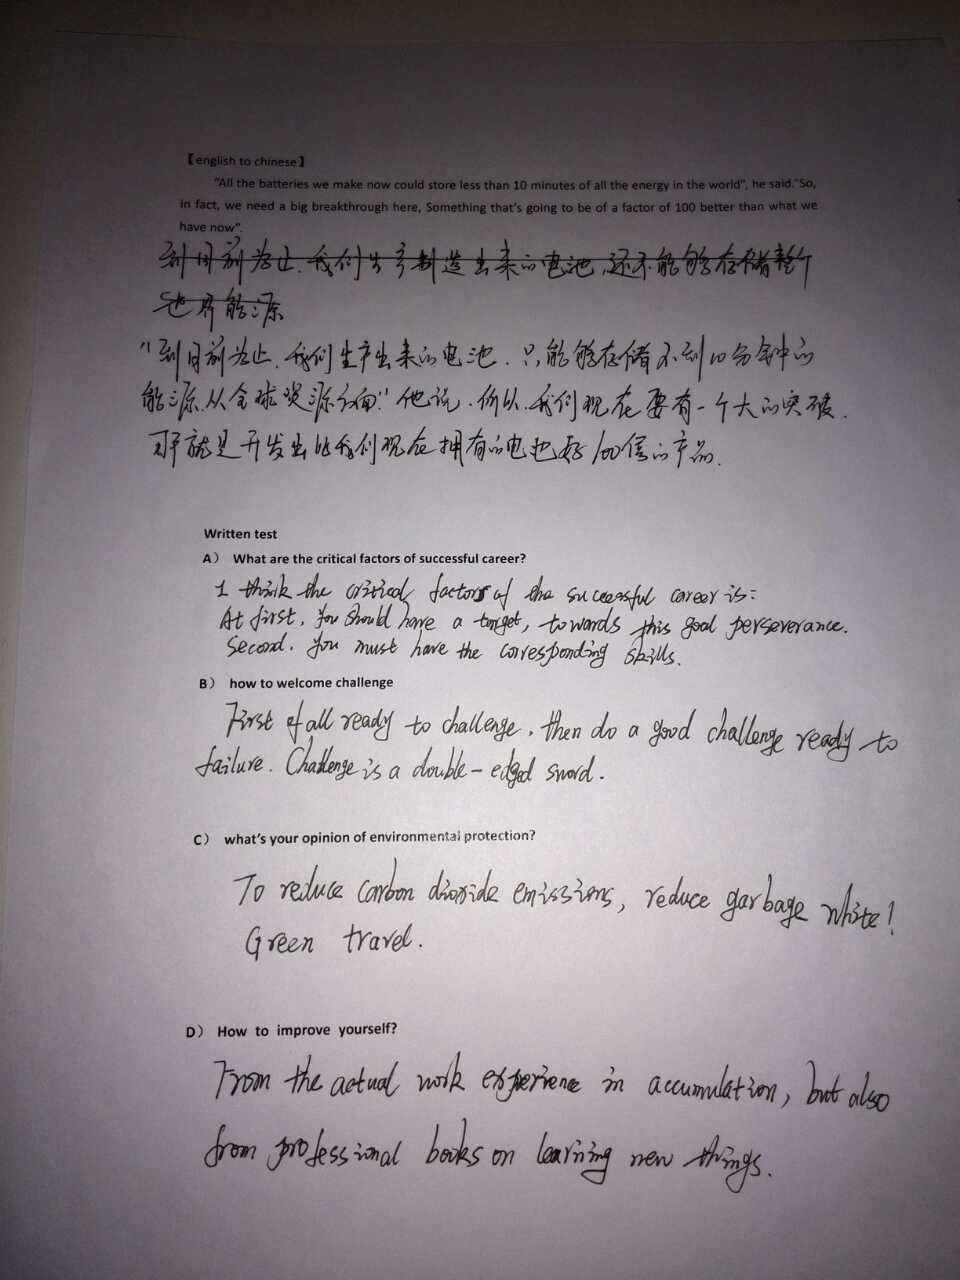 【english to chinese】
"All the batteries we make now could store less than 10 minutes of all the energy in the world", he said."So,
in fact, we need a big breakthrough here, Something that's going to be of a factor of 100 better than what we
have now".
到目前为止.我们生产制造出来的电池,还不能够存储整个
世界能源
"到目前为止.我们生产出来的电池.只能够存储不到10分钟的
能源.从全球资源方面."他说.所以.我们现在要有一个大的突破.
那就是开发出比我们现在拥有的电池好100倍的产品.
Written test
A） What are the critical factors of successful career?
I think the critical factors of the successful career is:
At first, you should have a target, towards this goal perseverance.
Second. you must have the corresponding skills.
B） how to welcome challenge
First of all ready to challenge, then do a good challenge ready to
failure. Challenge is a double-edged sword.
C） what's your opinion of environmental protection?
To reduce carbon dioxide emissions, reduce garbage white!
Green travel.
D） How to improve yourself?
From the actual work experience in accumulation, but also
from professional books on learning new things.